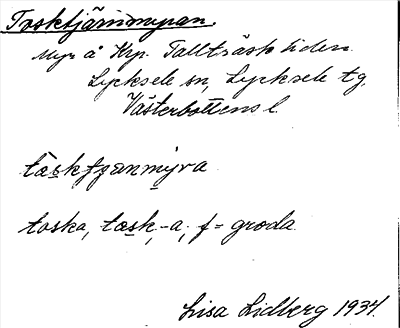 Tosktjärnmyran.
Myr å Krp. Tallträsk liden
Lycksele sn, Lycksele tg,
Västerbottens l.
tåsktjæ̣rnmyra
toska, tåsk, -a, f = groda
Lisa Lidberg 1934.